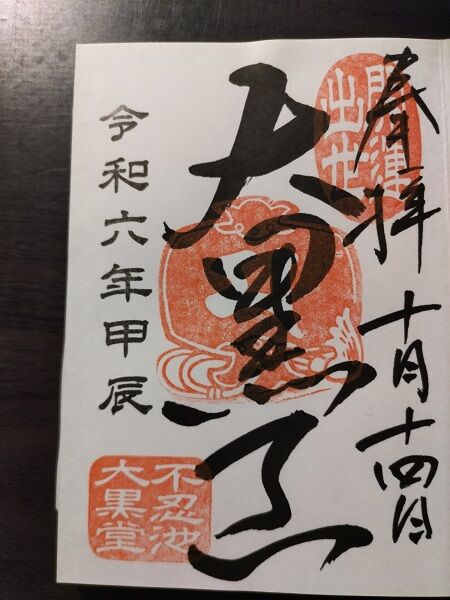 奉拝 十月十四日
開運
出世
大黒天
令和六年甲辰
不忍池
大黒堂